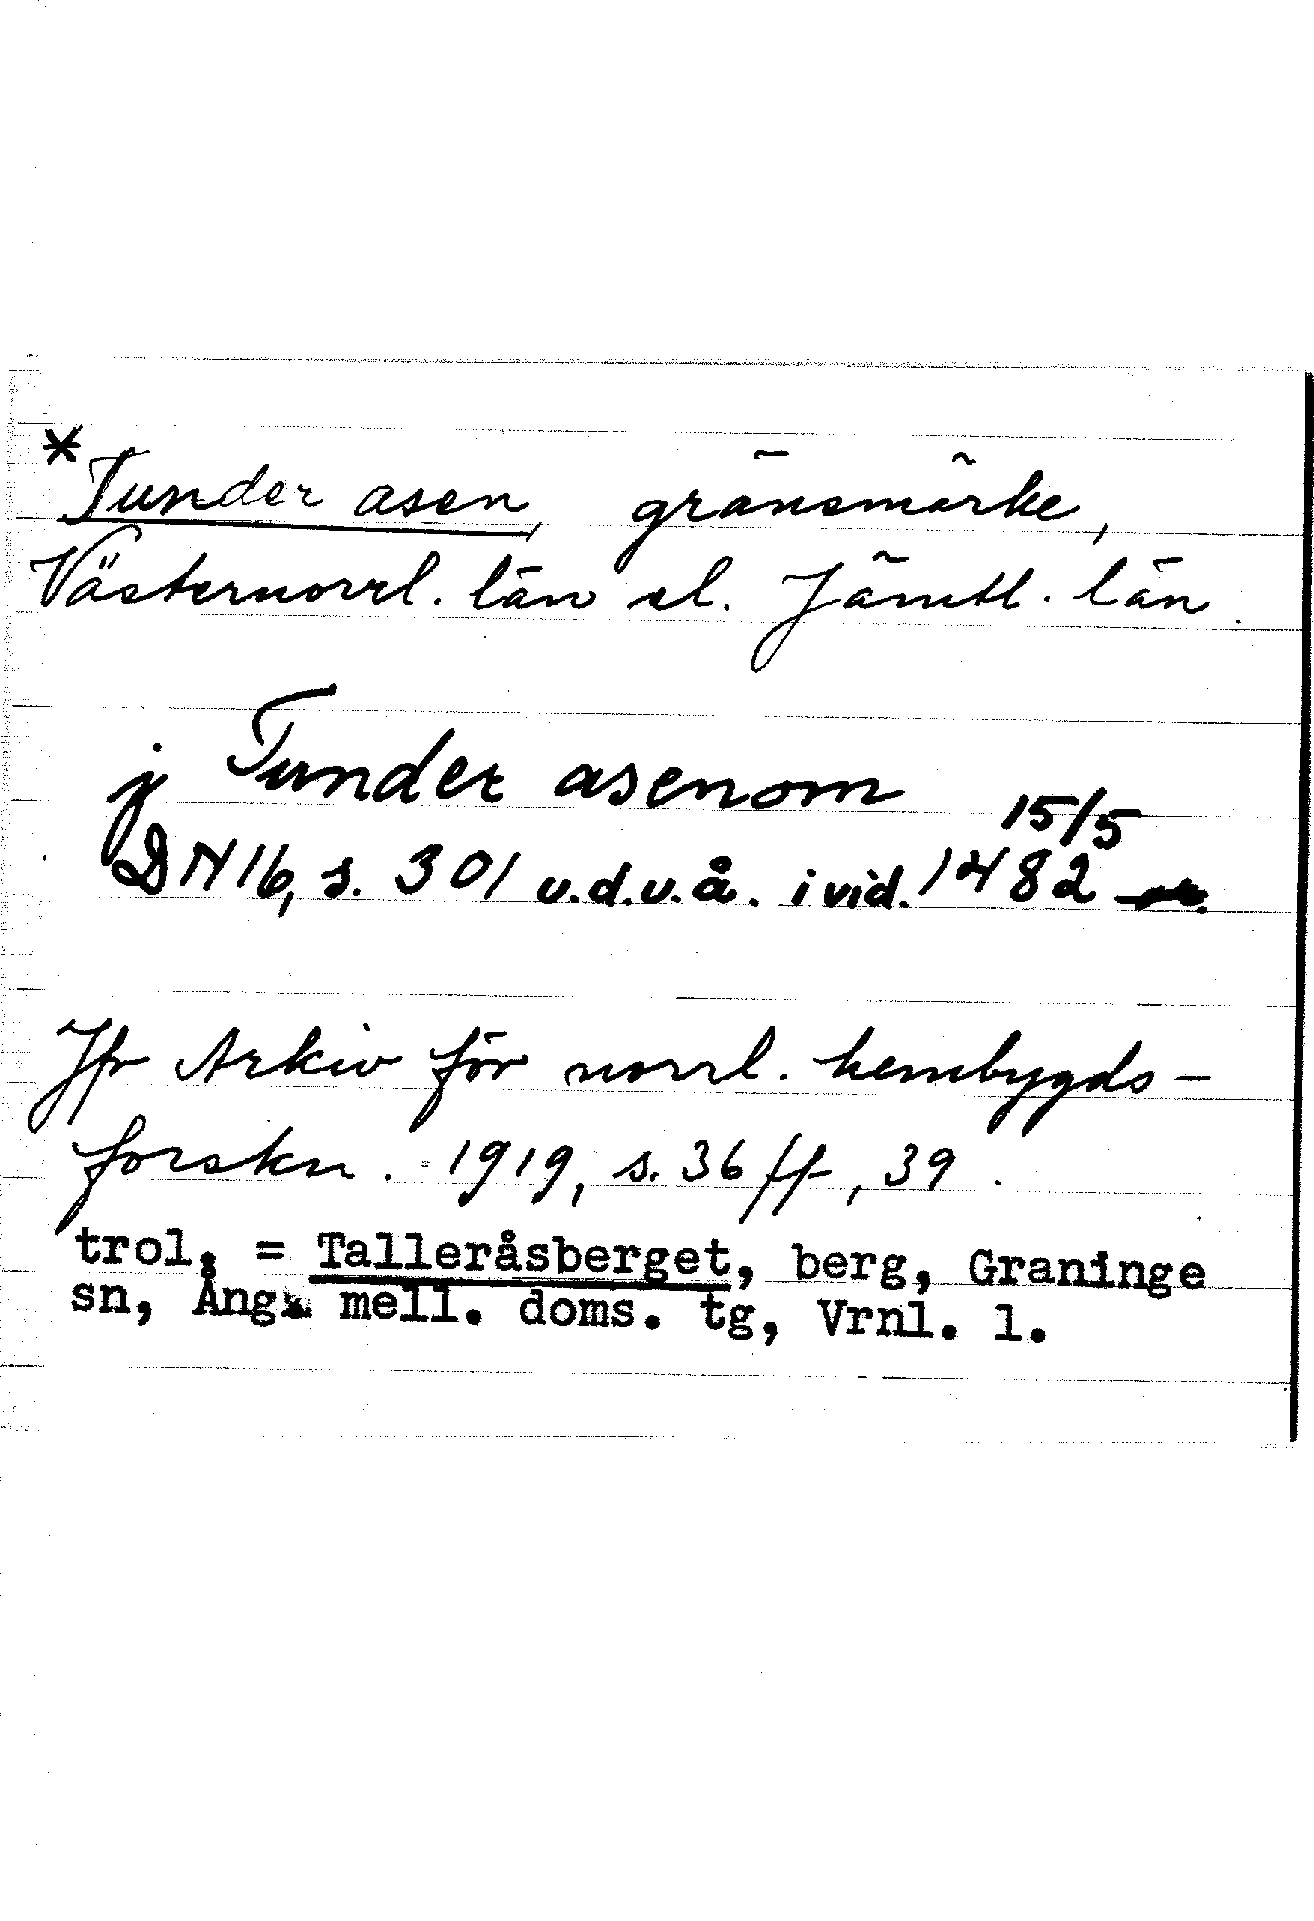 *Tunder asen, gränsmärke,
Västernorrl. län el. Jämtl. län.
j Tunder asenom
DN 16, s. 301 u.d.u.å. i vid. 15/5 1482
Jfr Arkiv för norrl. hembygds-
forskn. 1919, s. 36 ff, 39.
trol. = Talleråsberget, berg, Graninge
sn, Ång. mell. doms. tg, Vrnl. l.